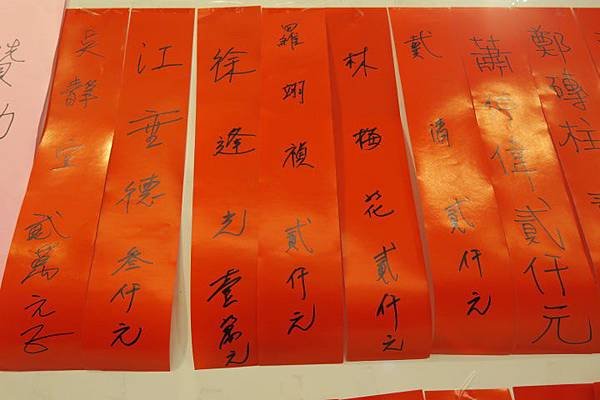 鄭磚柱
蕭偉貳仟元
戴清貳仟元
林梅花貳仟元
羅翊禎貳仟元
徐逢光壹萬元
江重德叁仟元
吳靜宜貳萬元
贊助